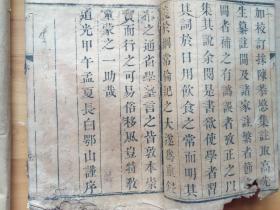 加校訂採陳恭愍集註取高
生纂註閻及諸家註繁者節
闕者補之有譌誤者攷正之以
集其說余閱是書欲使學者習
其詞於日用飲食之常而明其
於綱常倫紀之大遂為重
之通省學臺言之皆敦本崇
實而行之可易俗移風豈特教
童蒙之一助哉
道光甲午孟夏長白鄂山謹序